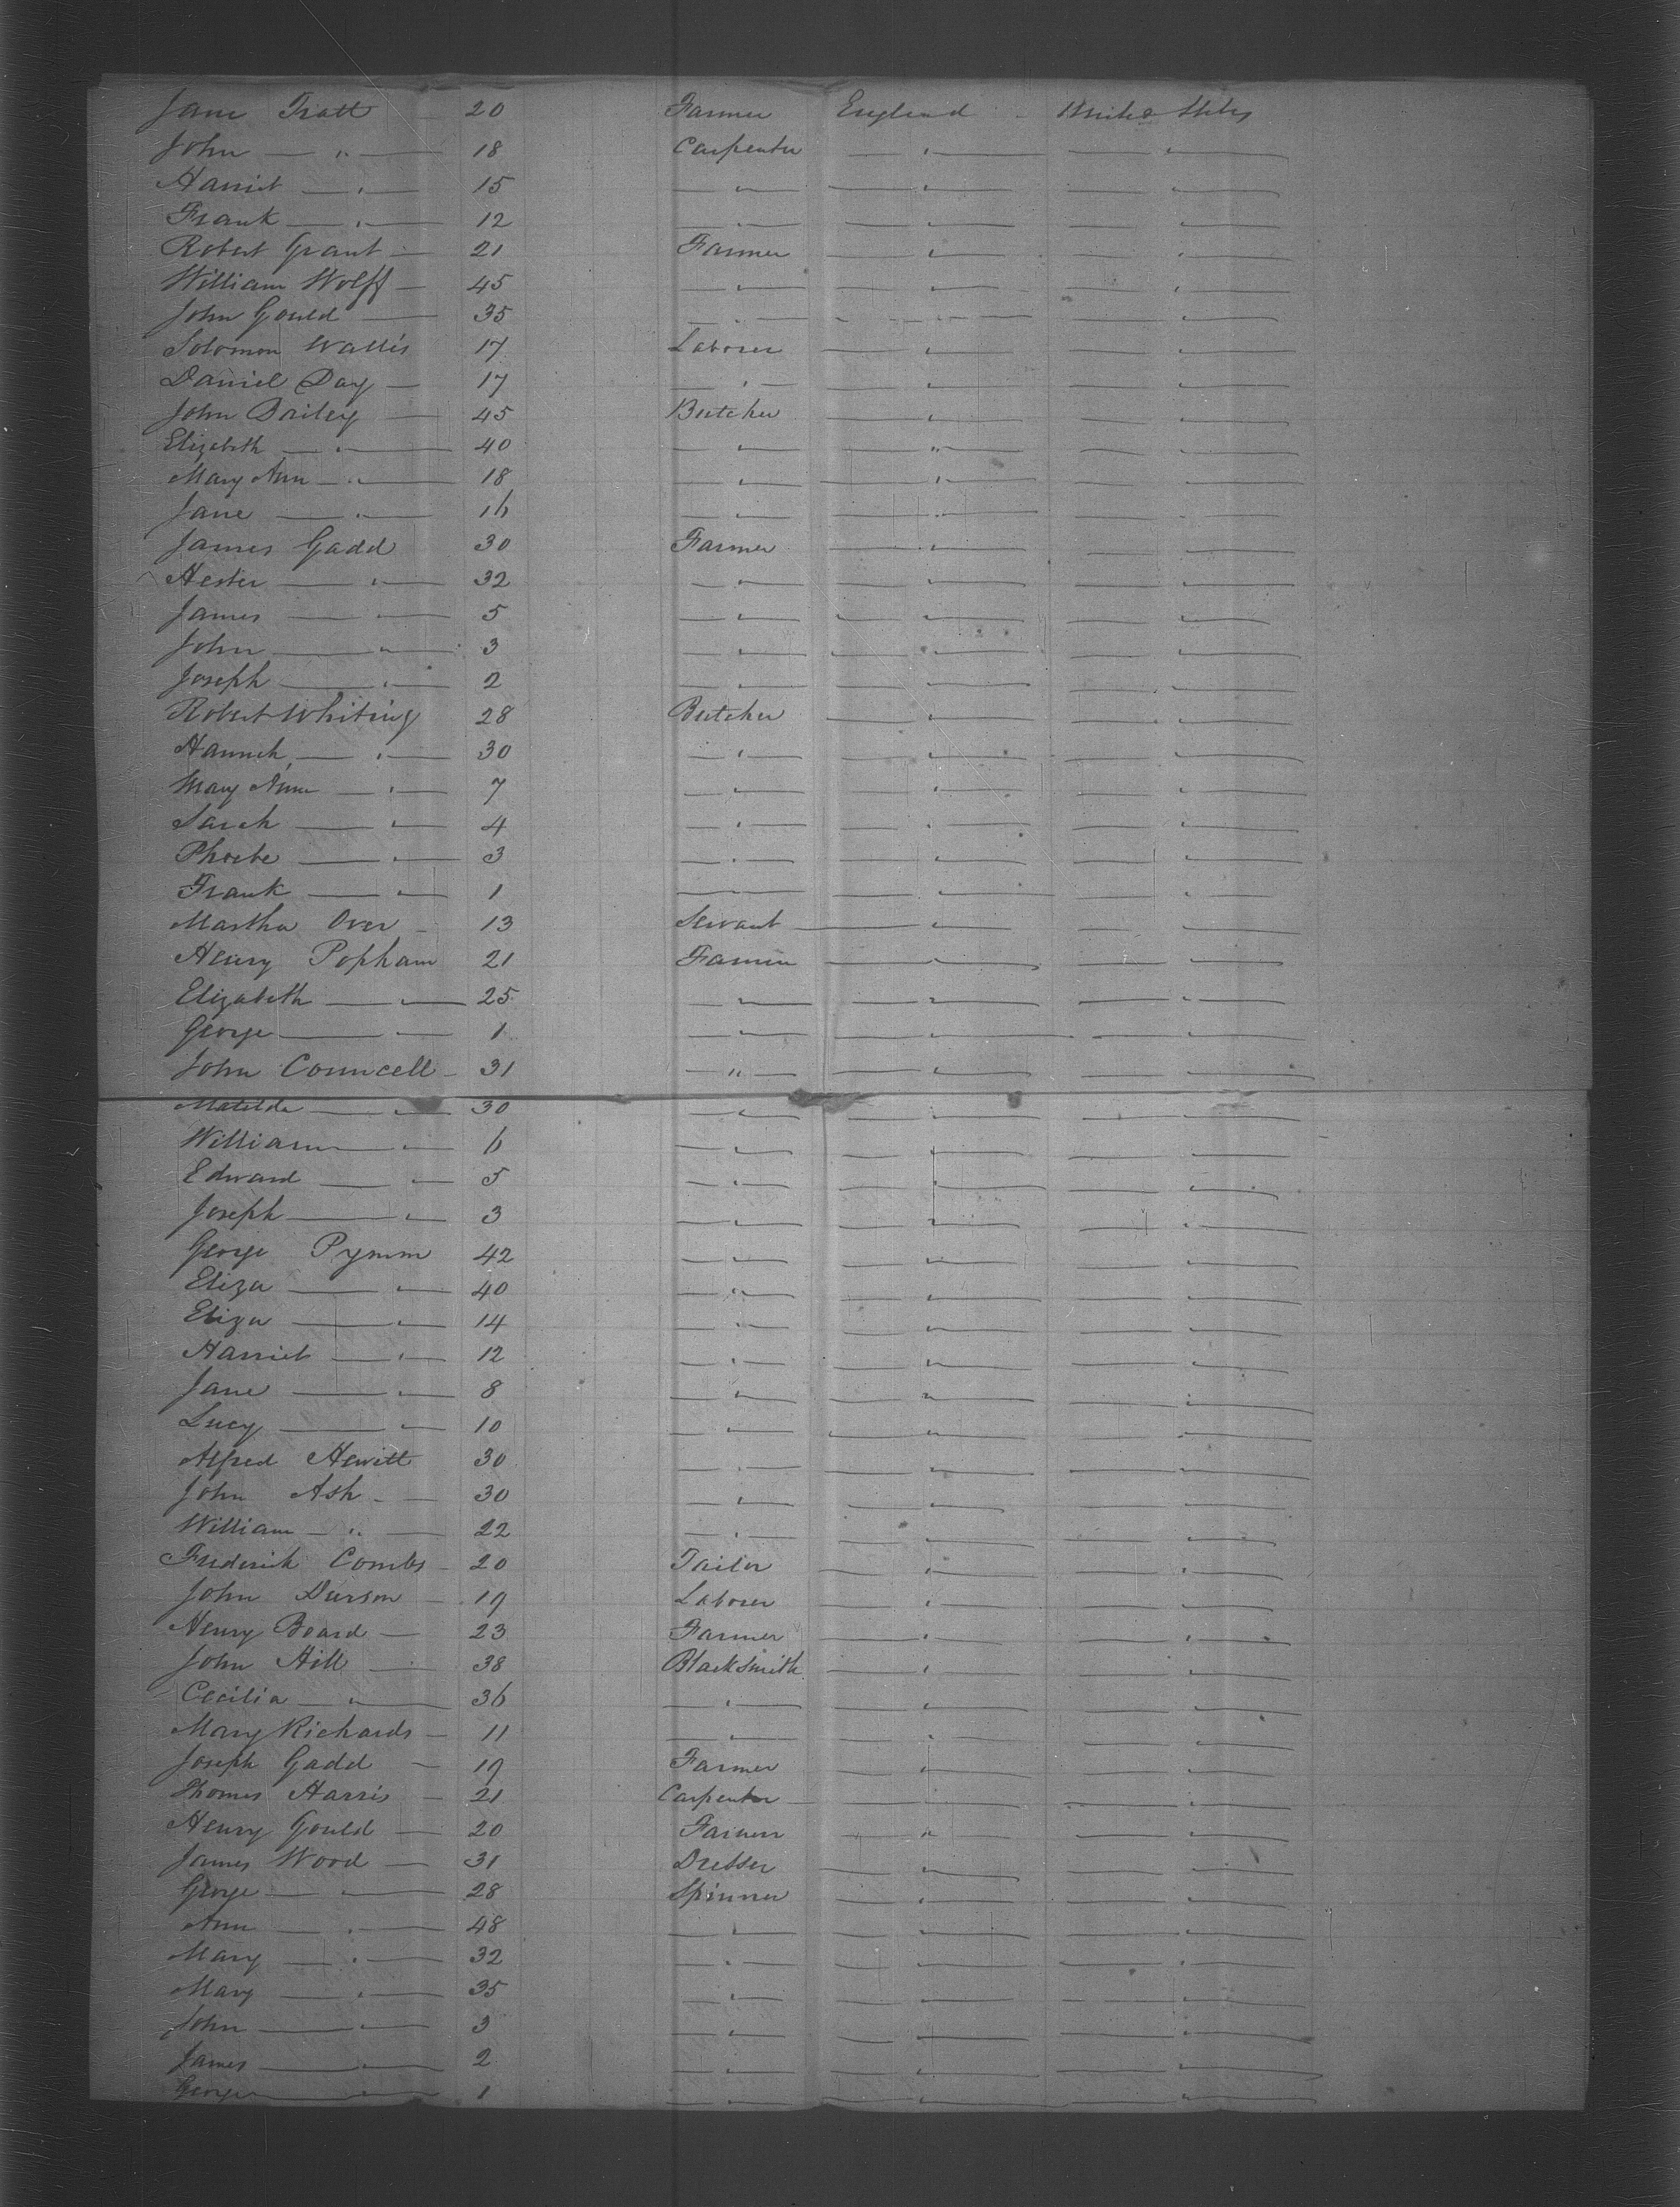 Jane Tratt 20 Farmer England United States
John — " — 18 Carpenter — " — — " —
Harriet — " — 15 — " — — " — — " —
Frank — " — 12 — " — — " — — " —
Robert Grant — 21 Farmer — " — — " —
William Wolff — 45 — " — — " — — " —
John Gould — 35 — " — — " — — " —
Solomon Wallis 17 Laborer — " — — " —
Daniel Day — 17 — " — — " — — " —
John Bailey — 45 Butcher — " — — " —
Elizabeth — " — 40 — " — — " — — " —
Mary Ann — " — 18 — " — — " — — " —
Jane — " — 16 — " — — " — — " —
James Gadd 30 Farmer — " — — " —
Hester — " — 32 — " — — " — — " —
James — " — 5 — " — — " — — " —
John — " — 3 — " — — " — — " —
Joseph — " — 2 — " — — " — — " —
Robert Whiting 28 Butcher — " — — " —
Hannah — " — 30 — " — — " — — " —
Mary Ann — " — 7 — " — — " — — " —
Sarah — " — 4 — " — — " — — " —
Phoebe — " — 3 — " — — " — — " —
Frank — " — 1 — " — — " — — " —
Martha Over — 13 Servant — " — — " —
Henry Popham 21 Farmer — " — — " —
Elizabeth — " — 25 — " — — " — — " —
George — " — 1 — " — — " — — " —
John Councell — 31 — " — — " — — " —
Matilda — " — 30 — " — — " — — " —
William — " — 6 — " — — " — — " —
Edward — " — 5 — " — — " — — " —
Joseph — " — 3 — " — — " — — " —
George Pymm 42 — " — — " — — " —
Eliza — " — 40 — " — — " — — " —
Eliza — " — 14 — " — — " — — " —
Harriet — " — 12 — " — — " — — " —
Jane — " — 8 — " — — " — — " —
Lucy — " — 10 — " — — " — — " —
Alfred Hewitt 30 — " — — " — — " —
John Ash — 30 — " — — " — — " —
William — " — 22 — " — — " — — " —
Frederick Combs — 20 Tailor — " — — " —
John Durson — 19 Laborer — " — — " —
Henry Board — 23 Farmer — " — — " —
John Hill — 38 BlackSmith — " — — " —
Cecilia — " — 36 — " — — " — — " —
Mary Richards — 11 — " — — " — — " —
Joseph Gadd — 19 Farmer — " — — " —
Thomas Harris — 21 Carpenter — " — — " —
Henry Gould — 20 Farmer — " — — " —
James Wood — 31 Dresser — " — — " —
George — " — 28 Spinner — " — — " —
Ann — " — 48 — " — — " — — " —
Mary — " — 32 — " — — " — — " —
Mary — " — 35 — " — — " — — " —
John — " — 3 — " — — " — — " —
James — " — 2 — " — — " — — " —
George — " — 1 — " — — " — — " —